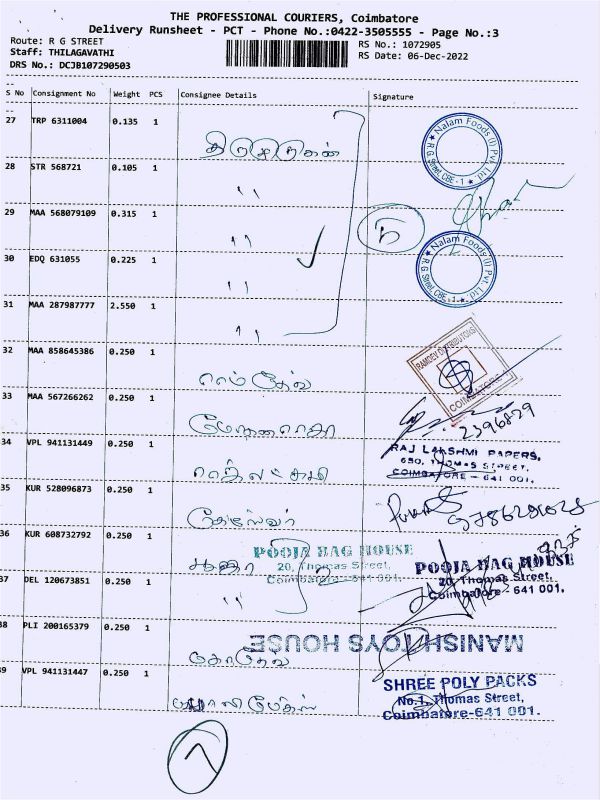 THE PROFESSIONAL COURIERS, Coimbatore
Delivery Runsheet - PCT - Phone No.:0422-3505555 - Page No.:3
Route: R G STREET
Staff: THILAGAVATHI
DRS No.: DCJB107290503
RS No.: 1072905
RS Date: 06-Dec-2022
S No Consignment No Weight PCS Consignee Details Signature
27 TRP 6311004 0.135 1
Nalam Foods (I) Pvt. Ltd.
R.G Street, CBE - 1
28 STR 568721 0.105 1 "
29 MAA 568079109 0.315 1 "
5
30 EDQ 631055 0.225 1 "
Nalam Foods (I) Pvt. Ltd.
R.G Street, CBE - 1
31 MAA 287987777 2.550 1 "
32 MAA 858645386 0.250 1 ராம்தேவ்
RAMDEV DISTRIBUTORS
COIMBATORE
33 MAA 567266262 0.250 1
2396829
34 VPL 941131449 0.250 1
RAJ LAKSHMI PAPERS,
650, THOMAS STREET,
COIMBATORE - 641 001.
35 KUR 528096873 0.250 1
36 KUR 608732792 0.250 1 பூஜா
POOJA BAG HOUSE
20, Thomas Street,
Coimbatore-641 001.
POOJA BAG HOUSE
20, Thomas Street,
Coimbatore - 641 001.
37 DEL 120673851 0.250 1 "
38 PLI 200165379 0.250 1
MANISH TOYS HOUSE
39 VPL 941131447 0.250 1
SHREE POLY PACKS
No.1, Thomas Street,
Coimbatore-641 001.
7